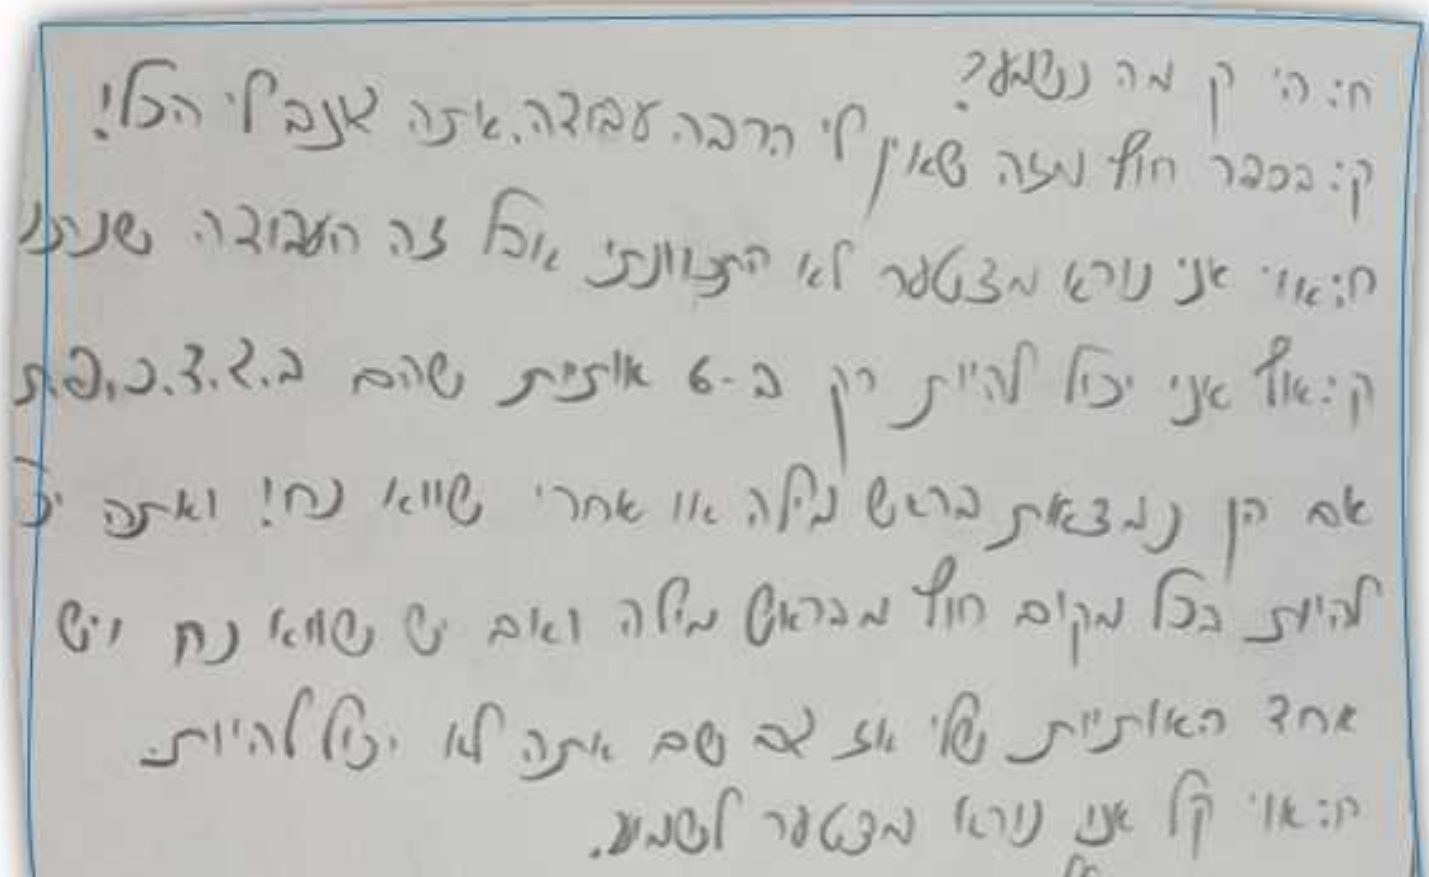 ח: הי ק מה נשמע?
ק: בסבר חוץ מזה שאין לי הרבה עבודה. אתה גונב לי הכל!
ח: אוי אני נורא מצטער לא התכוונתי אבל זה העבודה שנתנו
ק: אוף אני יכול להיות רק ב-6 אותיות שהם ב.ג.ד.כ.פ.ת
אם הן נמצאת בראש מילה או אחרי שווא נח! ואתה
להיות בכל מקום חוץ מבראש מילה ואם יש שווא נח ויש
אחד האותיות שלי אז גם שם אתה לא יכול להיות.
ח: אוי קל אני נורא מצטער לשמוע.